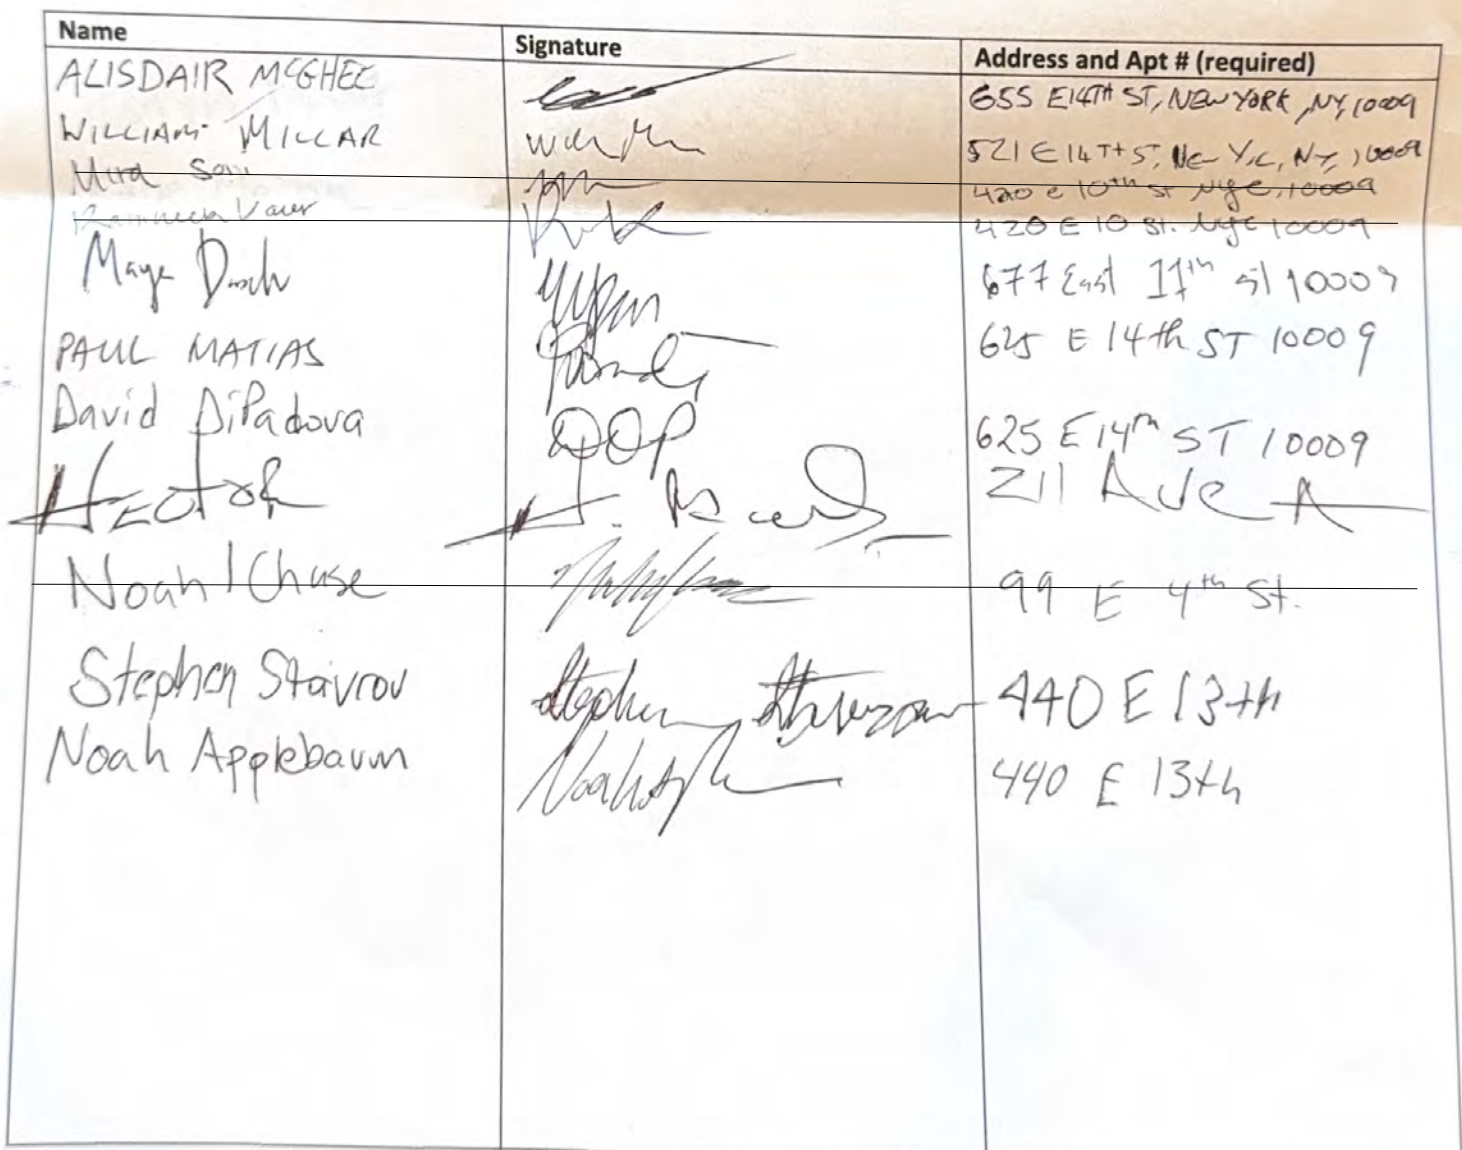 Name Signature Address and Apt # (required)
ALISDAIR MCGHEE 655 E14TH ST, NEW YORK, NY, 10009
WILLIAM MILLAR 521 E 14 TH ST, NY, 10009
Mira Soni 420 e 10th st NYC, 10009
420 E 10 St. NYC 10009
Maya 677 East 11th st 10009
PAUL MATIAS 625 E 14th ST 10009
David DiPadova DDP 625 E 14th ST 10009
HECTOR H. 211 Ave A
Noah Chase 99 E 4th St.
Stephen Stavrou Stephen 440 E 13th
Noah Applebaum 440 E 13th